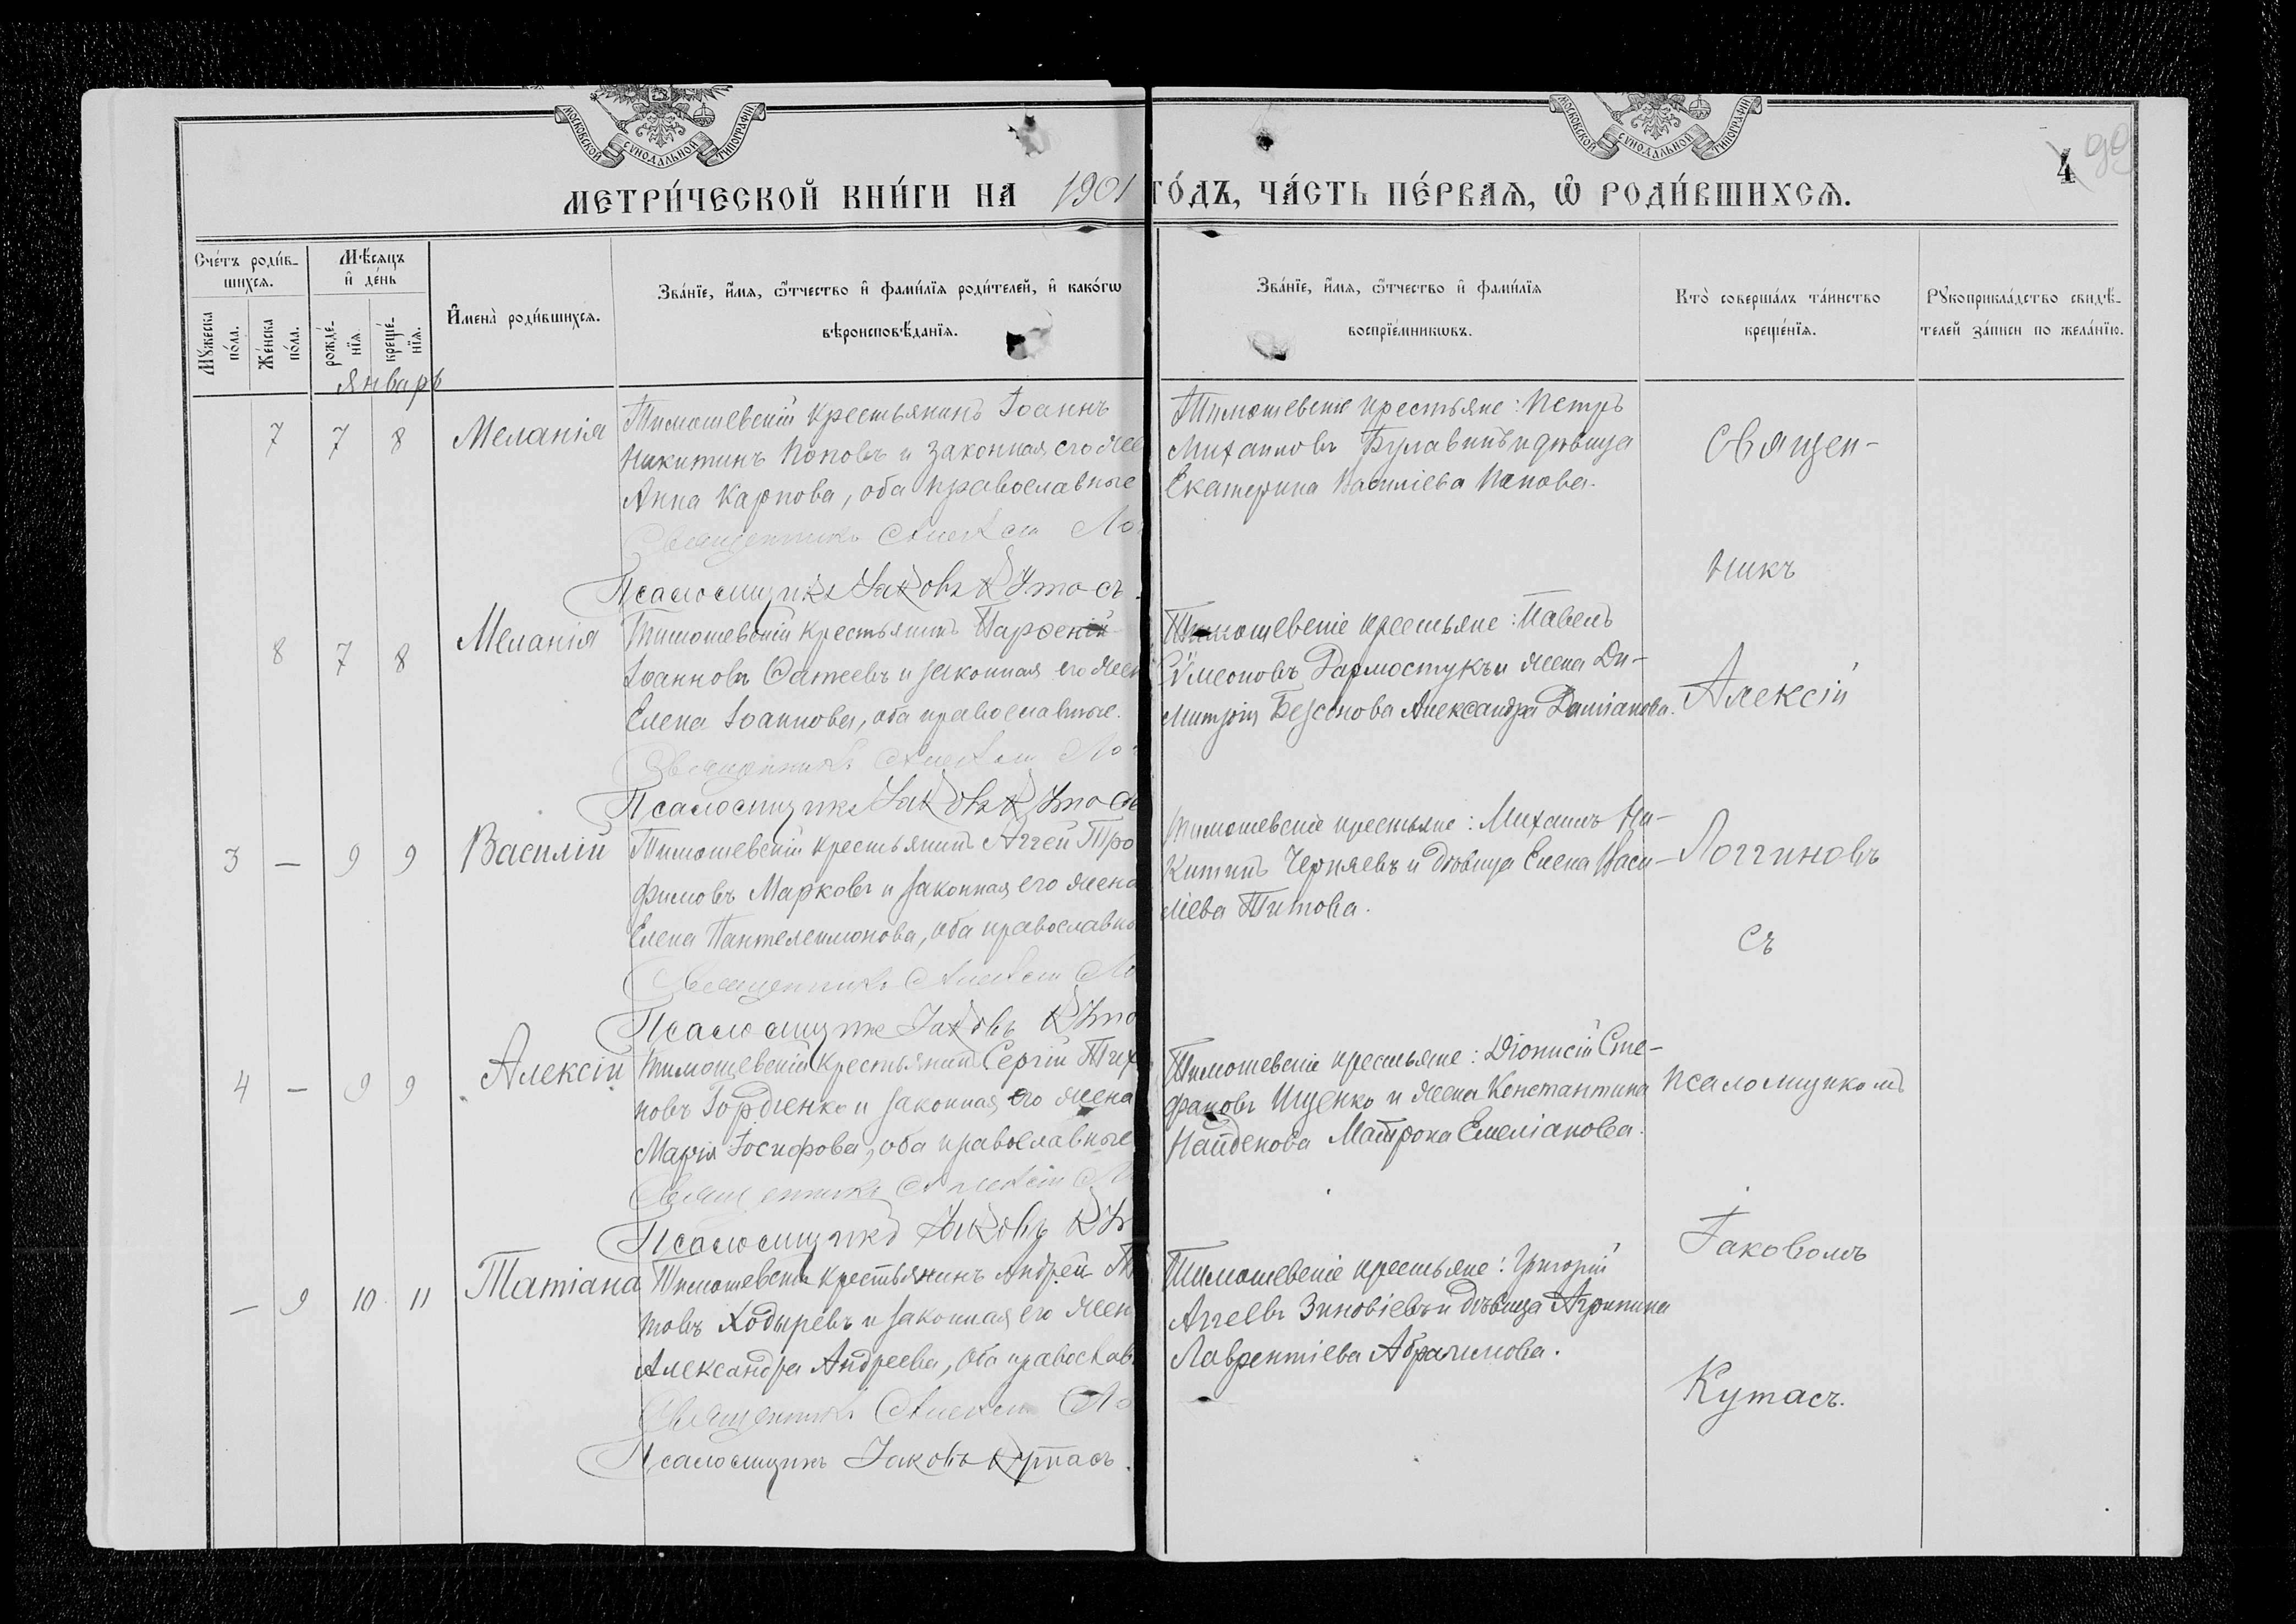 МОСКОВСКОЙ СѴНОДАЛЬНОЙ ТИПОГРАФІИ
МОСКОВСКОЙ СѴНОДАЛЬНОЙ ТИПОГРАФІИ
4
99
МЕТРИ́ЧЕСКОЙ КНИ́ГИ НА 1901 ГО́ДЪ, ЧА́СТЬ ПЕ́РВАЯ, Ѿ РОДИ́ВШИХСЯ.
Сче́тъ роди́в-
шихся.
Мꙋ́жеска
по́ла.
Же́нска
по́ла.
Мѣ́сяцъ
и҆ де́нь
рожде́-
нїя.
креще́-
нїя.
И҆мена̀ роди́вшихся.
Зва́нїе, и҆́мя, ѻ҆́тчество и҆ фами́лїя роди́телей, и҆ како́гѡ
вѣроисповѣ́данїя.
Зва́нїе, и҆́мя, ѻ҆́тчество и҆ фами́лїя
воспрїе́мникѡвъ.
Кто̀ соверша́лъ та́инство
креще́нїя.
Рꙋкоприкла́дство свидѣ́-
телей за́писи по жела́нїю.
Январь
7 7 8
Меланія
Тимошевскій крестьянинъ Іоаннъ
Никитинъ Поповъ и законная его жен
Анна Карпова, оба православные
Священникъ Алексій Ло
Псаломщикъ Іаковъ Кутасъ.
Тимошевскіе крестьяне: Петръ
Михаиловъ Булавинъ и дѣвица
Екатерина Василіева Попова.
8 7 8
Меланія
Тимошевскій крестьянинъ Парѳеній
Іоанновъ Фатеевъ и законная его жен
Елена Іоаннова, оба православные.
Священникъ Алексій Ло
Псаломщикъ Іаковъ Кутас
Тимошевскіе крестьяне: Павелъ
Сѵмеоновъ Дармостукъ и жена Ди-
митрія Безсонова Александра Даміанова.
3 — 9 9
Василій
Тимошевскій крестьянинъ Аггей Тро
фимовъ Марковъ и законная его жена
Елена Пантелеимонова, оба православны
Священникъ Алексій Ло
Псаломщикъ Іаковъ Куто
Тимошевскіе крестьяне: Михаилъ Ни-
китинъ Черняевъ и дѣвица Елена Васи-
ліева Титова.
4 — 9 9
Алексій
Тимошевскій крестьянинъ Сергій Тих
новъ Гордіенко и законная его жена
Марія Іосифова, оба православные
Священникъ Алексій Л
Псаломщикъ Іаковъ Ку
Тимошевскіе крестьяне: Діонисій Сте-
фановъ Ищенко и жена Константина
Найденова Матрона Емеліанова.
— 9 10 11
Татіана
Тимошевскій крестьянинъ Андрей Т
товъ Ходыревъ и законная его жен
Александра Андреева, оба православ
Священникъ Алексій Ло
Псаломщикъ Іаковъ Кутасъ.
Тимошевскіе крестьяне: Григорій
Аггеевъ Зиновіевъ и дѣвица Агрипина
Лаврентіева Абрамимова.
Священ-
никъ
Алексій
Логгиновъ
съ
псаломщикомъ
Іаковомъ
Кутасъ.